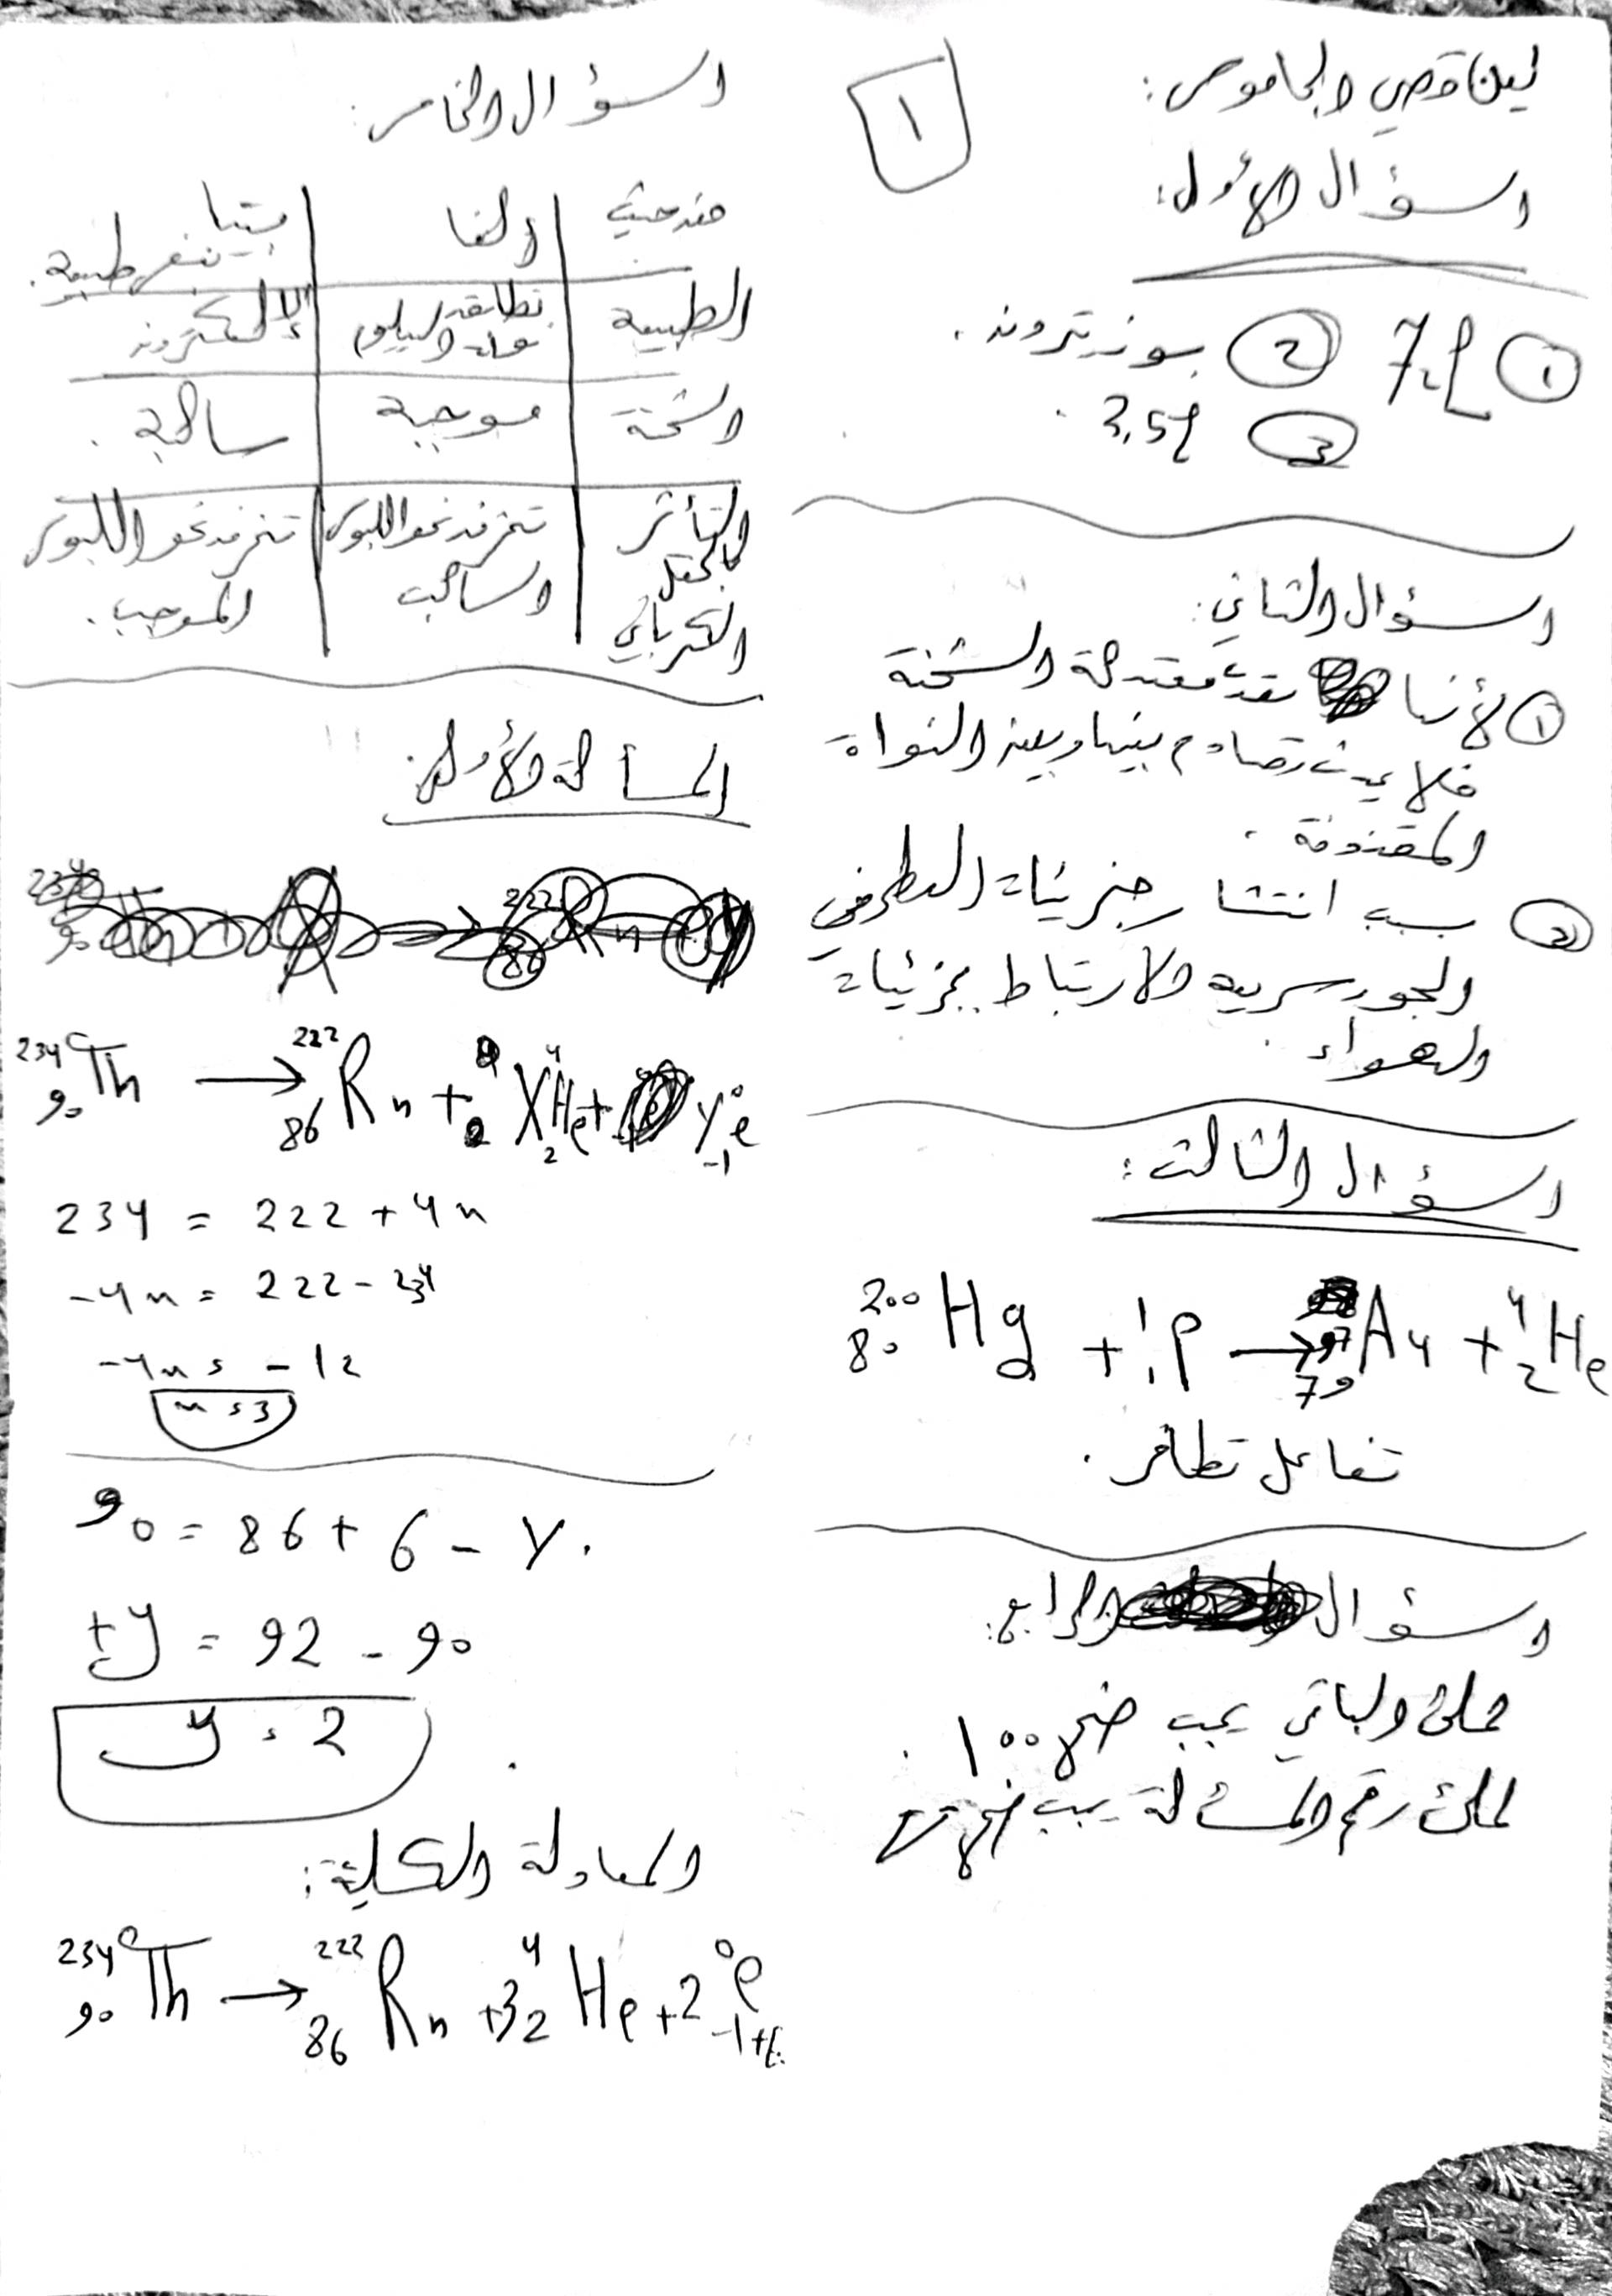 لين قصي الجاموس:
١
السؤال الأول:
① 7.2l ② بوزيترون.
③ 3,5l.
السؤال الثاني:
① لأنها معتدلة الشحنة
فلا يحدث تصادم بينها وبين النواة
المقذوفة.
② بسبب انتشار جزيئات العطر في
الجو و الارتباط بجزيئات
الهواء.
السؤال الثالث:
²⁰⁰₈₀Hg + ¹₁P → ¹⁹⁷₇₉Au + ⁴₂He
تفاعل تطافر.
السؤال الرابع:
الباقي يجب ضرب 100.
رقم المسألة يجب
السؤال الخامس:
من حيث | ألفا | بيتا
الطبيعة | تطابق نواة الهيليوم | الإلكترون
الشحنة | موجبة | سالبة.
التأثر بالحقل الكهربائي | تنحرف نحو اللبوس السالب | تنحرف نحو اللبوس الموجب.
المسألة الأولى:
²³⁴₉₀Th → ²²²₈₆Rn + X⁴₂He + y⁰₋₁e
234 = 222 + 4n
-4n = 222 - 234
-4n = -12
n = 3
90 = 86 + 6 - y.
+y = 92 - 90
y = 2
المعادلة الكلية:
²³⁴₉₀Th → ²²²₈₆Rn + 3⁴₂He + 2⁰₋₁e + E.